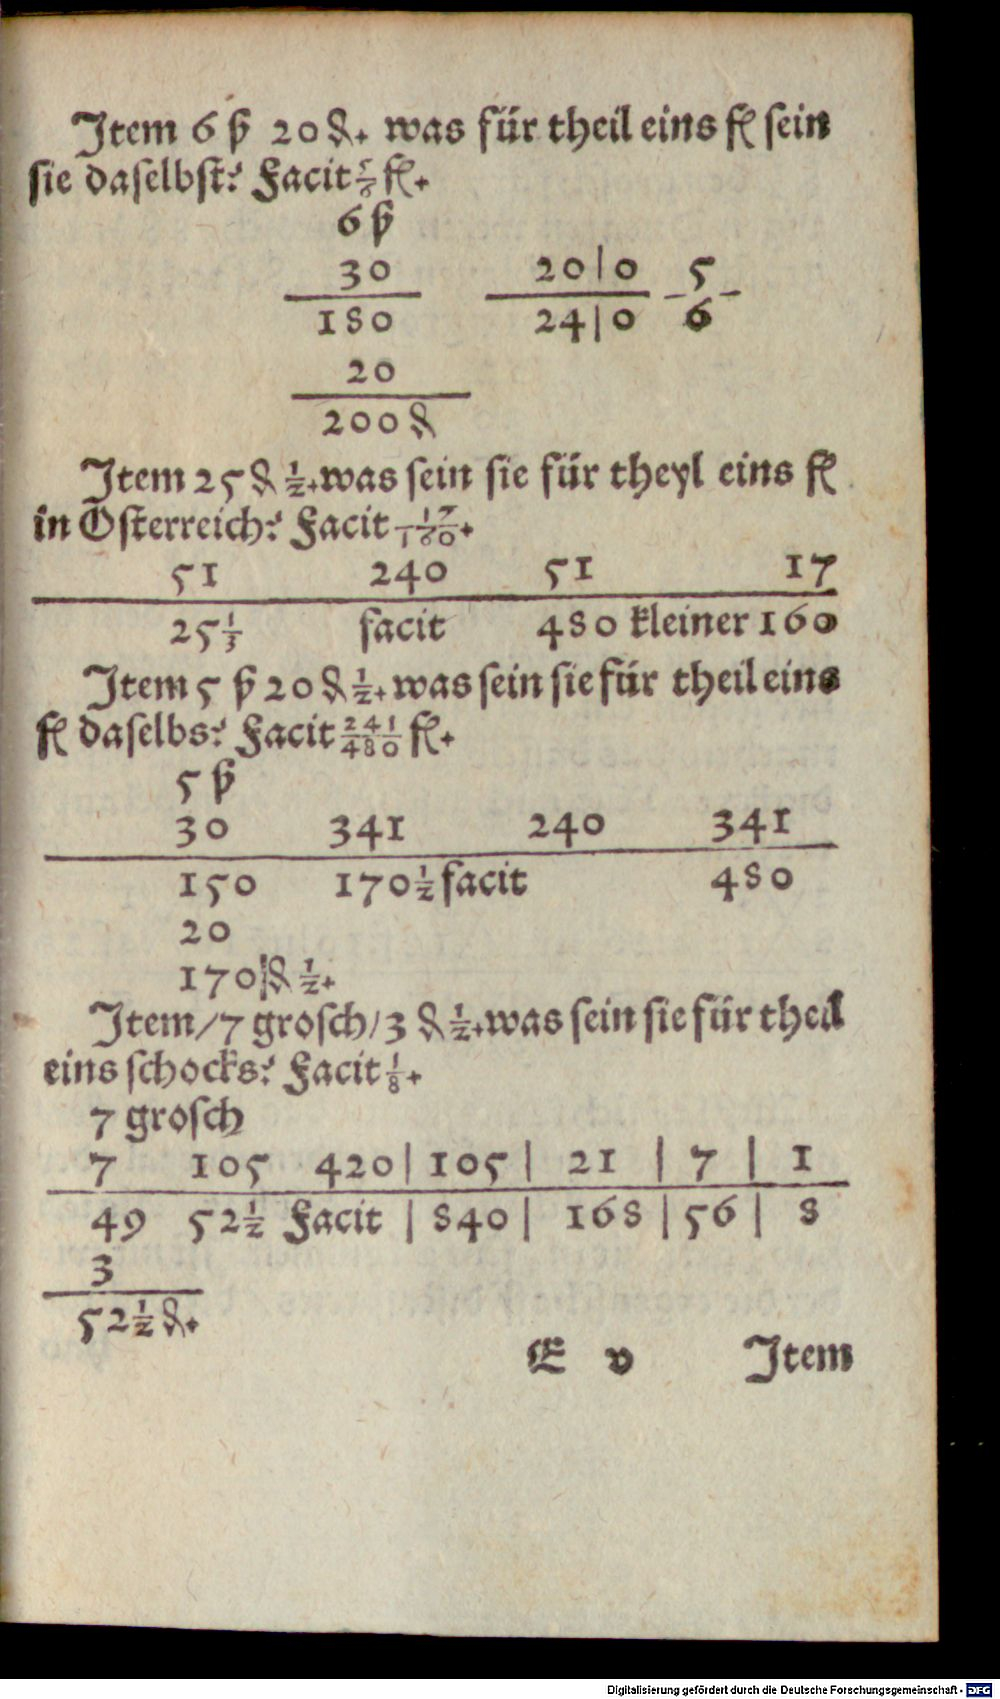 Item 6 ß 20 ₰. was für theil eins fl sein
sie daselbst? Facit 5/6 fl.
6 ß
30 20|0 5
180 24|0 6
20
200 ₰
Item 25 ₰ 1/2. was sein sie für theyl eins fl
in Osterreich? Facit 17/160.
51 240 51 17
25 1/3 facit 480 kleiner 160
Item 5 ß 20 ₰ 1/2. was sein sie für theil eins
fl daselbs? Facit 241/480 fl.
5 ß
30 341 240 341
150 170 1/2 facit 480
20
170 ₰ 1/2.
Item/ 7 grosch/ 3 ₰ 1/2. was sein sie für theil
eins schocks? Facit 1/8.
7 grosch
7 105 420| 105| 21 | 7 | 1
49 52 1/2 Facit | 840| 168 | 56 | 8
3
52 1/2 ₰.
E v Item
Digitalisierung gefördert durch die Deutsche Forschungsgemeinschaft - DFG